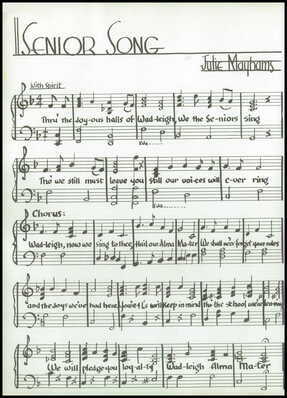 SENIOR SONG
Julie Mayhams
With Spirit
Thru the Joy-ous halls of Wad-leigh, We the Se-niors sing
8va...
Tho' we still must leave you still our voi-ces will e-ver ring
8va...
Chorus:
Wad-leigh, now we sing to thee, Hail our Alma Ma-ter We shall ne'er forget your rules
and the joys we've had here, Loyal-ty we'll keep in mind tho' the school we're leaving
We will pledge you loy-al-ty Wad-leigh Alma Ma-ter